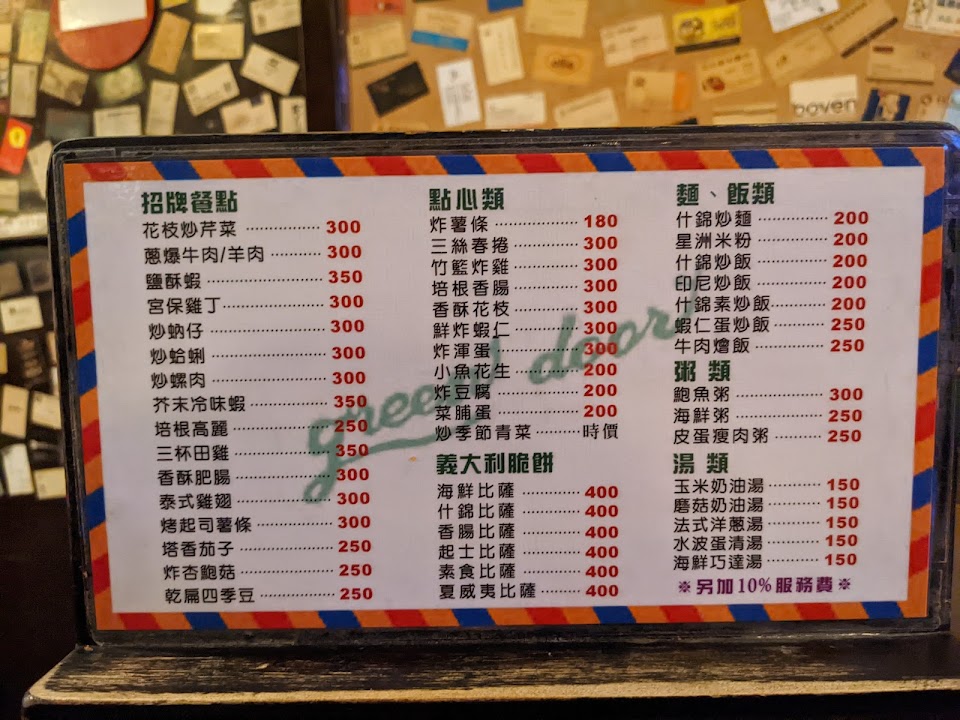 招牌餐點
花枝炒芹菜 300
蔥爆牛肉/羊肉 300
鹽酥蝦 350
宮保雞丁 300
炒蚋仔 300
炒蛤蜊 300
炒螺肉 300
芥末冷味蝦 350
培根高麗 250
三杯田雞 350
香酥肥腸 300
泰式雞翅 300
烤起司薯條 300
塔香茄子 250
炸杏鮑菇 250
乾扁四季豆 250
點心類
炸薯條 180
三絲春捲 300
竹籃炸雞 300
培根香腸 300
香酥花枝 300
鮮炸蝦仁 300
炸渾蛋 300
小魚花生 200
炸豆腐 200
菜脯蛋 200
炒季節青菜 時價
義大利脆餅
海鮮比薩 400
什錦比薩 400
香腸比薩 400
起士比薩 400
素食比薩 400
夏威夷比薩 400
麵、飯類
什錦炒麵 200
星洲米粉 200
什錦炒飯 200
印尼炒飯 200
什錦素炒飯 200
蝦仁蛋炒飯 250
牛肉燴飯 250
粥類
鮑魚粥 300
海鮮粥 250
皮蛋瘦肉粥 250
湯類
玉米奶油湯 150
蘑菇奶油湯 150
法式洋蔥湯 150
水波蛋清湯 150
海鮮巧達湯 150
※另加10%服務費※
green door
boven